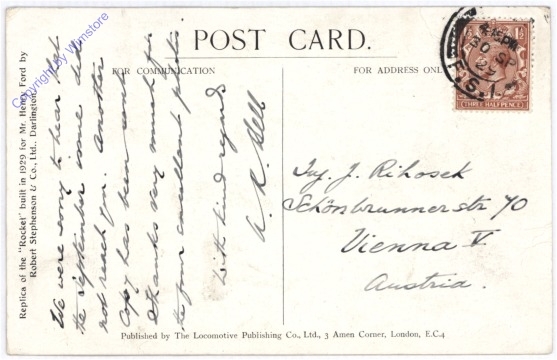 POST CARD.
FOR COMMUNICATION
FOR ADDRESS ONLY
Replica of the "Rocket" built in 1929 for Mr. Henry Ford by
Robert Stephenson & Co., Ltd., Darlington.
We were sorry to hear that
the September issue did
not reach you. Another
copy has been sent.
Thanks very much for
the four excellent photos.
With kind regards
A. R. Bell
THREE HALFPENCE
Ing. J. Rihosek
Schönbrunnerstr 70
Vienna V.
Austria.
Published by The Locomotive Publishing Co., Ltd., 3 Amen Corner, London, E.C.4
Copyright by Wimstore